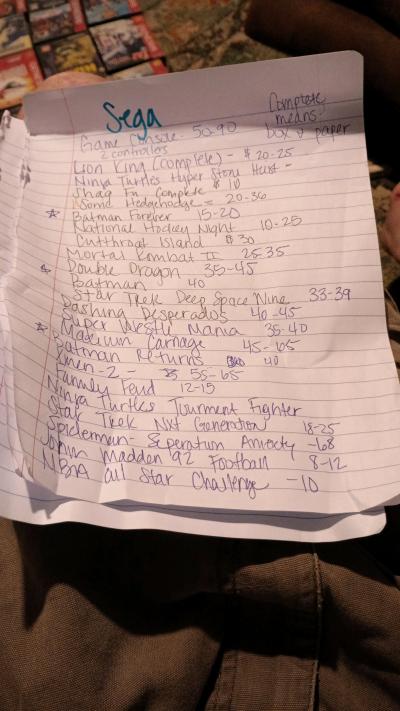 Sega
Complete
means:
box & paper
Game Console - 50-90
2 controllers
Lion King (complete) - $20-25
Ninja Turtles Hyper Stone Heist -
Shaq Fu Complete $10
Sonic Hedgehodge = 20-36
Batman Forever 15-20
National Hockey Night 10-25
Cutthroat Island $30
Mortal Kombat II 25-35
Double Dragon 35-45
Batman 40
Star Trek Deep Space Nine 33-39
Dashing Desperados 40-45
Super Westu Mania 35-40
Maxium Carnage 45-65
Batman Returns 40
Xmen-2 - 55-65
Family Feud 12-15
Ninja Turtles Tourment Fighter
Star Trek Nxt Generation 18-25
Spiderman - Seperation Anxiety -68
John Madden '92 Football 8-12
NBA all Star Challenge -10